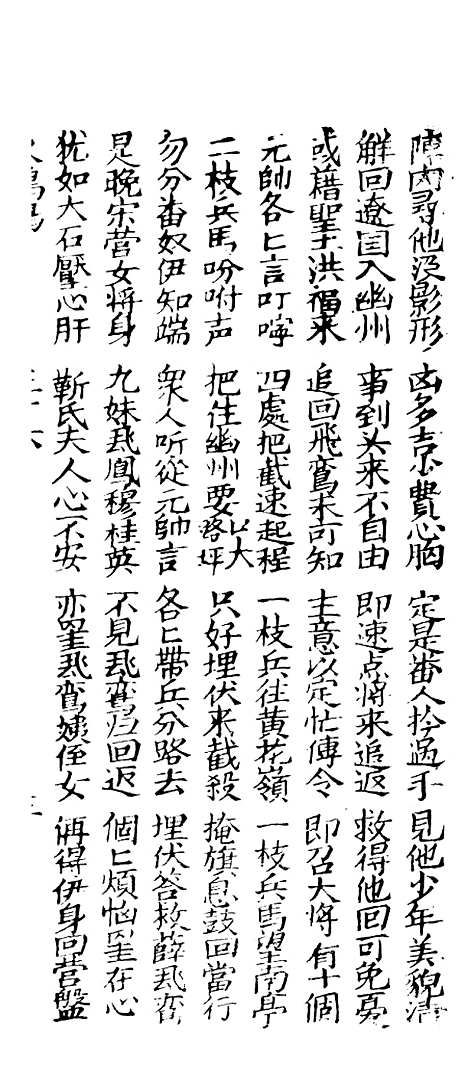 陣內尋他沒影形 凶多吉少費心胸 定是畨人扲過手 見他少年美貌清
觧回遼国入幽州 事到头來不自由 即速点將來追返 救得他囬可免憂
或藉聖王洪福來 追回飛鸞未可知 主意以定忙傳令 即召大將有十個
元帥各匕言叮嚀 四處把截速起程 一枝兵往黄花嶺 一枝兵馬望南亭
二枝兵馬吩咐声 把住幽州要路坪 以大 只好埋伏來截殺 掩旗息鼓回當行
勿分畨奴伊知端 衆人听從元帥言 各匕帶兵分路去 埋伏答救薛飛鸞
是晚宋营女將身 九妹飛鳳穆桂英 不見飛鸞回返 個匕煩恼罣在心
犹如大石壓心肝 靳氏夫人心不安 亦罣飛鸞侄女 得伊身向营盤